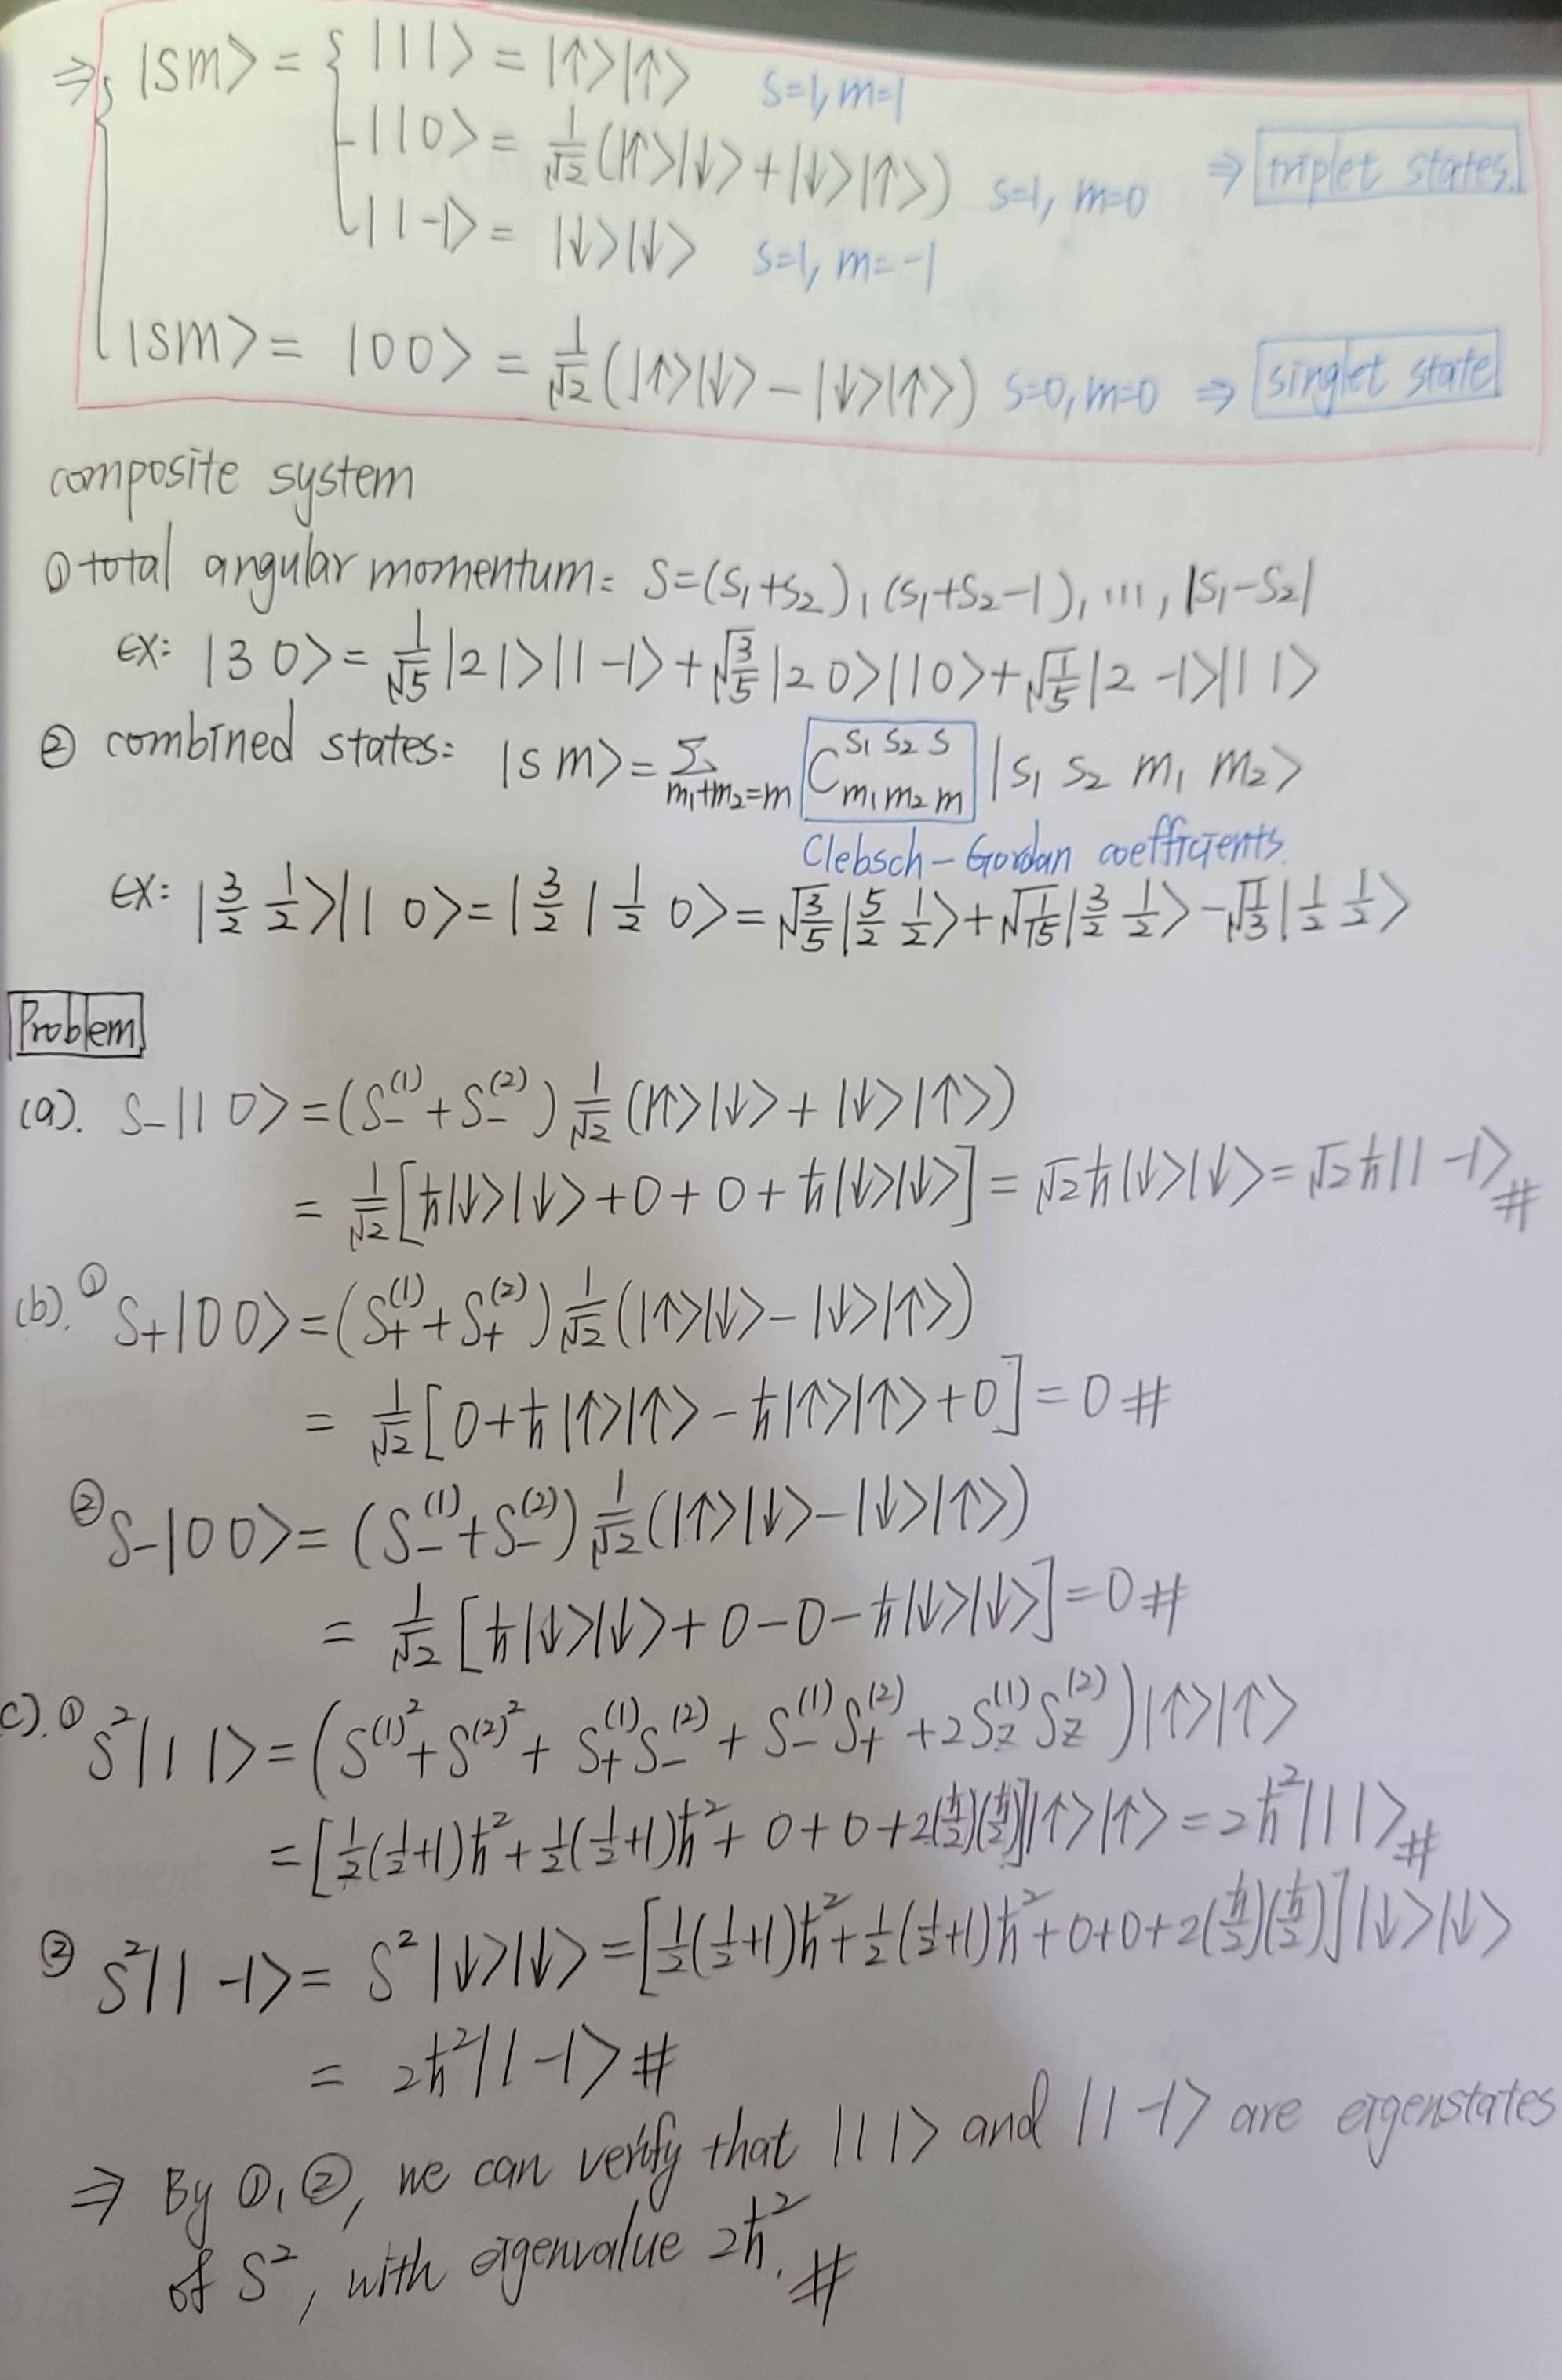 ⇒ { |sm> = { |1 1> = |↑>|↑> s=1, m=1
|1 0> = 1/√2 (|↑>|↓> + |↓>|↑>) s=1, m=0 ⇒ triplet states.
|1 -1> = |↓>|↓> s=1, m=-1
|sm> = |0 0> = 1/√2 (|↑>|↓> - |↓>|↑>) s=0, m=0 ⇒ singlet state
composite system
① total angular momentum: S=(s₁+s₂), (s₁+s₂-1), ..., |s₁-s₂|
ex: |3 0> = 1/√5 |2 1>|1 -1> + √(3/5) |2 0>|1 0> + √(1/5) |2 -1>|1 1>
② combined states: |s m> = Σ_{m₁+m₂=m} C^{s₁ s₂ s}_{m₁ m₂ m} |s₁ s₂ m₁ m₂>
Clebsch-Gordan coefficients.
ex: |3/2 1/2>|1 0> = |3/2 1 1/2 0> = √(3/5) |5/2 1/2> + √(1/15) |3/2 1/2> - √(1/3) |1/2 1/2>
Problem
(a). S₋|1 0> = (S₋⁽¹⁾ + S₋⁽²⁾) 1/√2 (|↑>|↓> + |↓>|↑>)
= 1/√2 [ħ|↓>|↓> + 0 + 0 + ħ|↓>|↓>] = √2 ħ|↓>|↓> = √2 ħ|1 -1> #
(b). ① S₊|0 0> = (S₊⁽¹⁾ + S₊⁽²⁾) 1/√2 (|↑>|↓> - |↓>|↑>)
= 1/√2 [0 + ħ|↑>|↑> - ħ|↑>|↑> + 0] = 0 #
② S₋|0 0> = (S₋⁽¹⁾ + S₋⁽²⁾) 1/√2 (|↑>|↓> - |↓>|↑>)
= 1/√2 [ħ|↓>|↓> + 0 - 0 - ħ|↓>|↓>] = 0 #
c). ① S²|1 1> = (S⁽¹⁾² + S⁽²⁾² + S₊⁽¹⁾S₋⁽²⁾ + S₋⁽¹⁾S₊⁽²⁾ + 2S_z⁽¹⁾S_z⁽²⁾)|↑>|↑>
= [1/2(1/2+1)ħ² + 1/2(1/2+1)ħ² + 0 + 0 + 2(ħ/2)(ħ/2)]|↑>|↑> = 2ħ²|1 1> #
② S²|1 -1> = S²|↓>|↓> = [1/2(1/2+1)ħ² + 1/2(1/2+1)ħ² + 0+0+2(ħ/2)(ħ/2)]|↓>|↓>
= 2ħ²|1 -1> #
⇒ By ①, ②, we can verify that |1 1> and |1 -1> are eigenstates
of S², with eigenvalue 2ħ². #